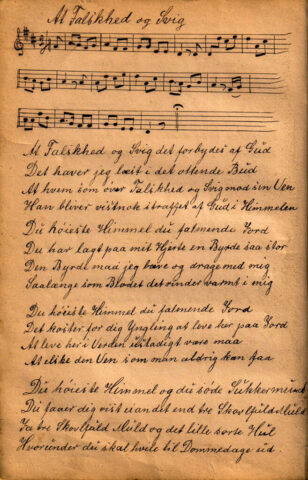 At Falskhed og Svig
At Falskhed og Svig det forbydes af Gud
Det haver jeg læst i det ottende Bud
At hvem som över Falskhed og Svig mod sin Ven
Han bliver vistnok straffet af Gud i Himmelen
Du höieste Himmel du falmende Jord
Du har lagt paa mit Hjerte en Byrde saa stor
Den Byrde maa jeg bære og drage med mig
Saalange som Blodet det rinder varmt i mig
Du höieste Himmel du falmende Jord
Det koster for dig Yngling at leve her paa Jord
At leve her i Verden ustadigt vare maa
At elske den Ven som man aldrig kan faa
Du höieste Himmel og du söde Sukkermund
Du faaer dig vist ei andet end tre Skovlfuld Muld
Ja tre Skovlfuld Muld og det lille sorte Hul
Hvorunder du skal hvile til Dommedage ud.